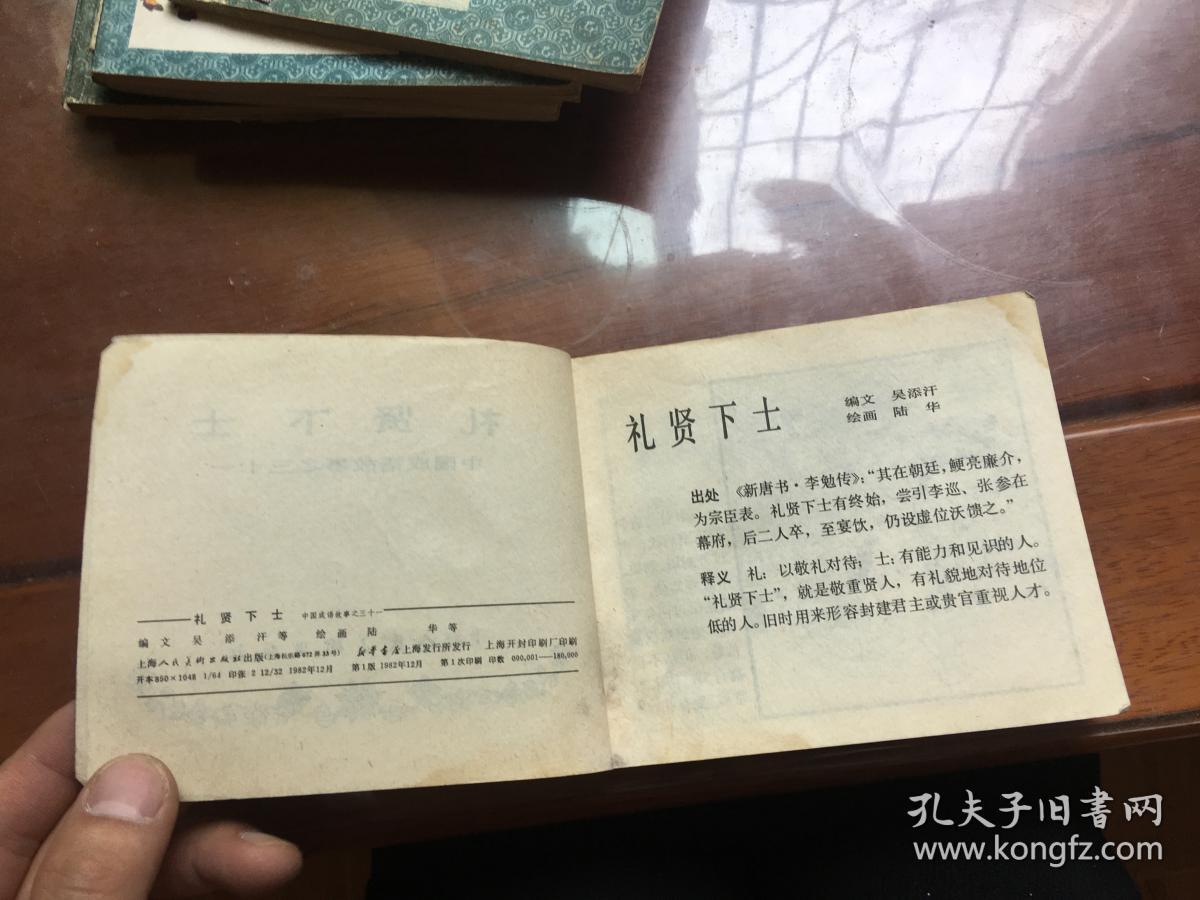 礼贤下士 中国成语故事之三十一
编文 吴添汗等 绘画 陆华等
上海人民美术出版社出版(上海长乐路672弄33号) 新华书店上海发行所发行 上海开封印刷厂印刷
开本850×1048 1/64 印张 2 12/32 1982年12月 第1版 1982年12月 第1次印刷 印数 000,001—180,000
礼贤下士
编文 吴添汗
绘画 陆华
出处 《新唐书·李勉传》:“其在朝廷,鲠亮廉介,
为宗臣表。礼贤下士有终始,尝引李巡、张参在
幕府,后二人卒,至宴饮,仍设虚位沃馈之。”
释义 礼:以敬礼对待;士:有能力和见识的人。
“礼贤下士”,就是敬重贤人,有礼貌地对待地位
低的人。旧时用来形容封建君主或贵官重视人才。
孔夫子旧書网
www.kongfz.com